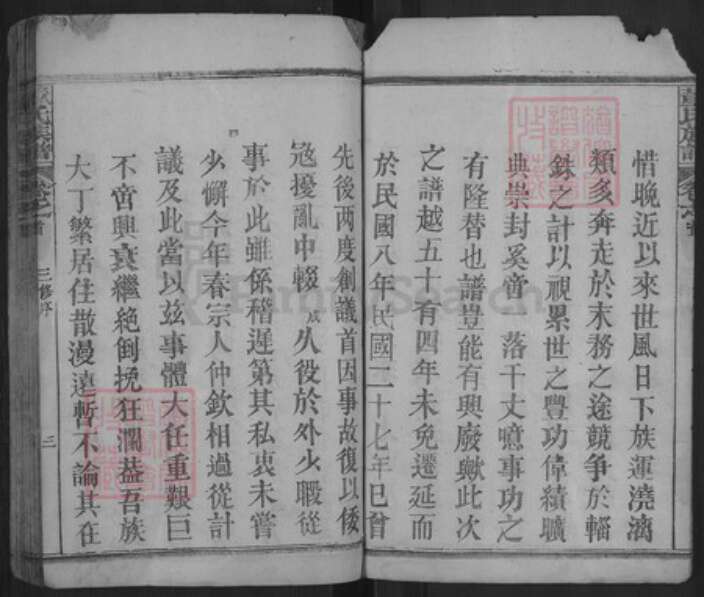 惜晚近以來世風日下族運澆漓
類多奔走於末務之途競爭於輜
銖之計以視累世之豐功偉績曠
典崇封奚啻落千丈噫事功之
有隆替也譜豈能有興廢歟此次
之譜越五十有四年未免遷延而
於民國八年民國二十七年已曾
先後两度創議首因事故復以倭
寇擾亂中輟久役於外少暇從
事於此雖係稽遲第其私衷未嘗
少懈今年春宗人仲欽相過從計
議及此當以兹事體大任重艱巨
不啻興衰繼絕倒挽狂瀾益吾族
大丁繁居住散漫遠暫不論其在
氏族譜
卷之首
三修序
三
FamilySearch